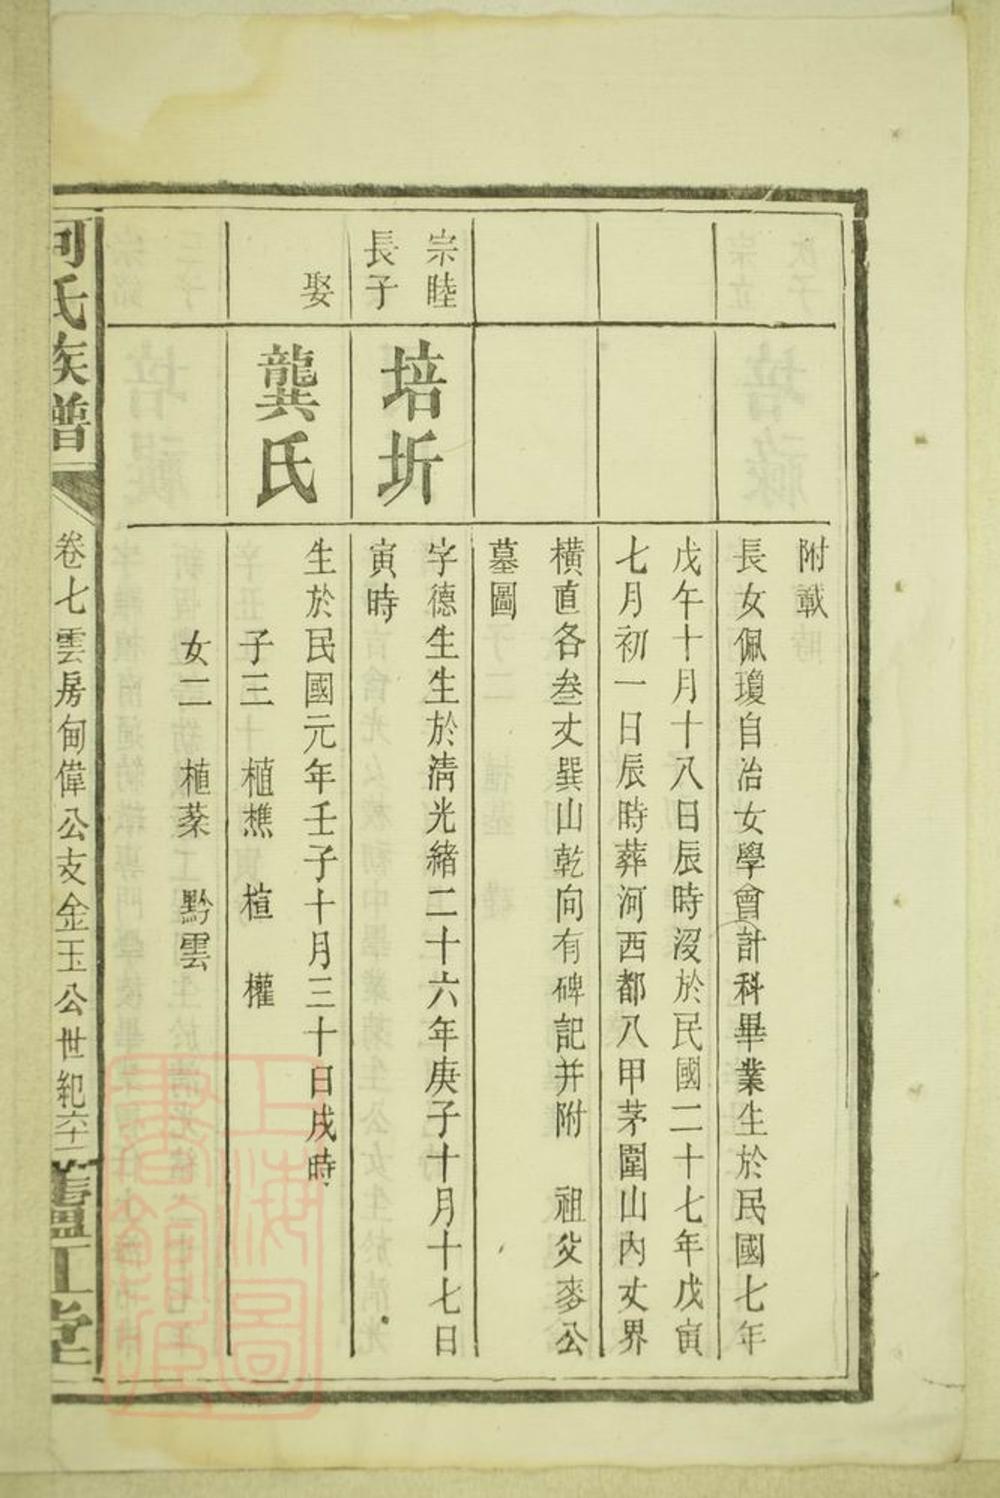 附載
長女佩瓊自治女學會計科畢業生於民國七年
戊午十月十八日辰時沒於民國二十七年戊寅
七月初一日辰時葬河西都八甲茅圍山內丈界
橫直各叁丈巽山乾向有碑記并附 祖父麥公
墓圖
宗睦
長子
培圻
字德生生於清光緒二十六年庚子十月十七日
寅時
娶
龔氏
生於民國元年壬子十月三十日戌時
子三 植樵 植 權
女二 植棻 黔雲
何氏族譜
卷七雲房甸偉公支金玉公世紀六十一
廬江堂
上海圖書館藏